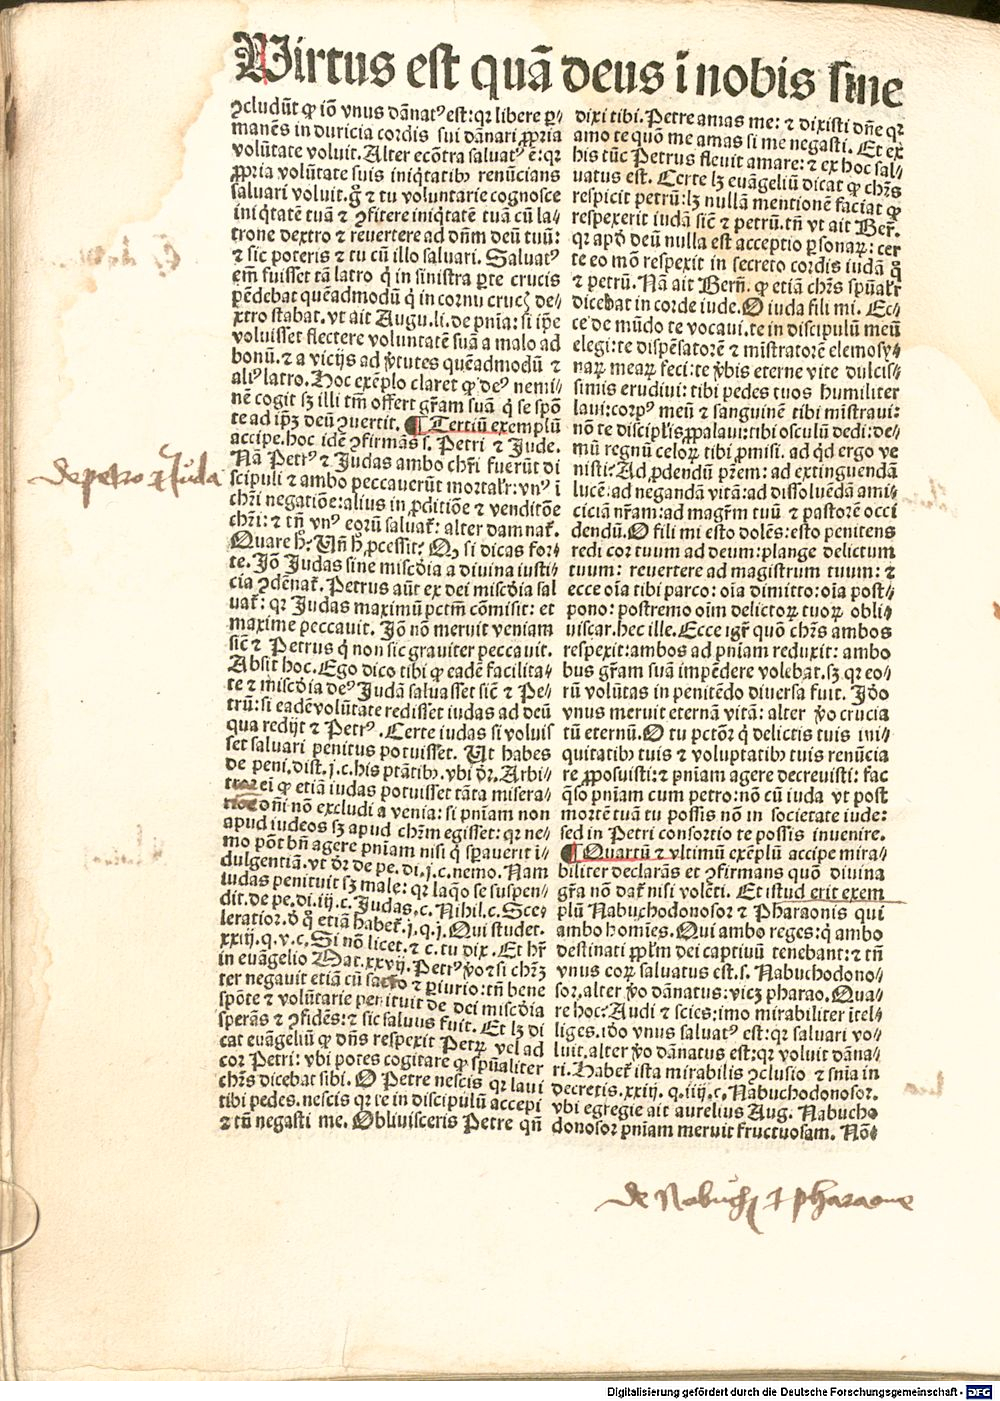 Uirtus est quā deus ī nobis sine
ꝯcludūt ꝙ iō vnus dānatꝰ est: qꝛ libere ꝑ⸗
manēs in duricia cordis sui dānari ꝓpria
volūtate voluit. Alter ecōtra saluatꝰ ē: qꝛ
ꝓpria volūtate suis iniq̇tatibꝫ renūcians
saluari voluit. g̊ ⁊ tu voluntarie cognosce
iniq̇tatē tuā ⁊ ꝯfitere iniq̇tatē tuā cū la⸗
trone dextro ⁊ reuertere ad dn̄m deū tuū:
⁊ sic poteris ⁊ tu cū illo saluari. Saluatꝰ
em̄ fuisset tā latro q̇ in sinistra ꝑte crucis
pēdebat quēadmodū q̇ in cornu crucꝭ de⸗
xtro stabat. vt ait Augu. li. de pn̄ia: si ip̄e
voluisset flectere voluntatē suā a malo ad
bonū. ⁊ a vicijs ad v̓tutes quēadmodū ⁊
aliꝰ latro. Hoc exēplo claret ꝙ deꝰ nemi⸗
nē cogit sꝫ illi tm̄ offert gr̄am suā q̇ se spō
te ad ip̄ꝫ deū ꝯuertit. ¶ Tertiū exemplū
accipe. hoc idē ꝯfirmās s. Petri ⁊ Jude.
Nā Petrꝰ ⁊ Judas ambo chr̄i fuerūt di
scipuli ⁊ ambo peccauerūt mortalr̄: vnꝰ ī
chr̄i negatiōe: alius in ꝑditiōe ⁊ venditōe
chr̄i: ⁊ tn̄ vnꝰ eorū saluat̄: alter damnat̄.
Quare h̓: Un̄ h̓ ꝓcessit: Qꝫ si dicas for⸗
te. Jō Judas sine misc̄dia a diuina iusti⸗
cia ꝯdēnat̄. Petrus aūt ex dei misc̄dia sal
uat̄: qꝛ Judas maximū pctm̄ cōmisit: et
maxime peccauit. Jō nō meruit veniam
sic̄ ⁊ Petrus q̇ non sic grauiter peccauit.
Absit hoc. Ego dico tibi ꝙ eadē facilita⸗
te ⁊ misc̄dia deꝰ Judā saluasset sic̄ ⁊ Pe⸗
trū: si eadē volūtate redisset iudas ad deū
qua redijt ⁊ Petrꝰ. Certe iudas si voluis
set saluari penitus potuisset. Ut habes
de peni. dist. j. c. his ptātibꝫ. vbi dr̄. Arbi⸗
tror em̄ ꝙ etiā iudas potuisset tāta misera⸗
tiōe on̄i nō excludi a venia: si pn̄iam non
apud iudeos sꝫ apud chm̄ egisset: qꝛ ne⸗
mo pōt bn̄ agere pn̄iam nisi q̇ spauerit ī⸗
dulgentiā. vt dr̄ de pe. di. j. c. nemo. Nam
iudas penituit sꝫ male: qꝛ laq̇o se suspen⸗
dit. de pe. di. iij. c. Judas. c. Nihil. c. Sce⸗
leratior. d̓ q̄ etiā habet̄. j. q. j. Qui studet.
xxiij. q. v. c. Si nō licet. ⁊ c. tu dix. Et hr̄
in euāgelio Mat. xxvij. Petrꝰ v̓o ⁊ si chr̄ꝫ
ter negauit etiā cū sacro ⁊ ꝑiurio: tn̄ bene
spōte ⁊ volūtarie penituit de dei misc̄dia
sperās ⁊ ꝯfidēs: ⁊ sic saluus fuit. Et lꝫ di
cat euāgeliū ꝙ dn̄s respexit Petꝝ vel ad
cor Petri: vbi potes cogitare ꝙ spūaliter
chr̄s dicebat sibi. O Petre nescis qꝛ laui
tibi pedes. nescis qꝛ te in discipulū accepi
⁊ tū negasti me. Obliuisceris Petre qn̄
dixi tibi. Petre amas me: ⁊ dixisti dn̄e qꝛ
amo te quō me amas si me negasti. Et ex
his tūc Petrus fleuit amare: ⁊ ex hoc sal⸗
uatus est. Certe lꝫ euāgeliū dicat ꝙ chr̄s
respicit petrū: lꝫ nullā mentionē faciat ꝙ
respexerit iudā sic̄ ⁊ petrū. tn̄ vt ait Ber̄.
qꝛ apd̓ deū nulla est acceptio ꝑsonaꝝ: cer
te eo mō respexit in secreto cordis iudā q̊
⁊ petrū. Nā ait Bern̄. ꝙ etiā chr̄s spūalr̄
dicebat in corde iude. O iuda fili mi. Ec⸗
ce de mūdo te vocaui. te in discipulū meū
elegi: te dispēsatorē ⁊ mīstratorē elemosy⸗
naꝝ meaꝝ feci: te v̓bis eterne vite dulcis⸗
simis erudiui: tibi pedes tuos humiliter
laui: corpꝰ meū ⁊ sanguinē tibi mīstraui:
nō te discipl̄is ꝓpalaui: tibi osculū dedi: de⸗
mū regnū celoꝝ tibi ꝓmisi. ad qd̓ ergo ve
nisti: Ad ꝓdendū pr̄em: ad extinguendā
lucē: ad negandā vitā: ad dissoluēdā ami⸗
ciciā nr̄am: ad magr̄m tuū ⁊ pastorē occi
dendū. O fili mi esto dolēs: esto penitens
redi cor tuum ad deum: plange delictum
tuum: reuertere ad magistrum tuum: ⁊
ecce oīa tibi parco: oīa dimitto: oīa post⸗
pono: postremo oīm delictoꝝ tuoꝝ obli⸗
uiscar. hec ille. Ecce igr̄ quō chr̄s ambos
respexit: ambos ad pn̄iam reduxit: ambo
bus gr̄am suā impēdere volebat. sꝫ qꝛ eo⸗
rū volūtas in penitēdo diuersa fuit. Jd̓o
vnus meruit eternā vitā: alter v̓o crucia
tū eternū. O tu pctōr q̇ delictis tuis ini⸗
quitatibꝫ tuis ⁊ voluptatibꝫ tuis renūcia
re ꝓposuisti: ⁊ pn̄iam agere decreuisti: fac
q̄so pn̄iam cum petro: nō cū iuda vt post
mortē tuā tu possis nō in societate iude:
sed in Petri consortio te possis inuenire.
¶ Quartū ⁊ vltimū exēplū accipe mira⸗
biliter declarās et ꝯfirmans quō diuina
gr̄a nō dat̄ nisi volēti. Et istud erit exem
plū Nabuchodonosor ⁊ Pharaonis qui
ambo homīes. Qui ambo reges: q̇ ambo
destinati ppl̄m dei captiuū tenebant: ⁊ tn̄
vnus eoꝝ saluatus est. s. Nabuchodono⸗
sor, alter v̓o dānatus: vicꝫ pharao. Qua⸗
re hoc: Audi ⁊ scies: imo mirabiliter ītel⸗
liges. iđo vnus saluatꝰ est: qꝛ saluari vo⸗
luit. alter v̓o dānatus est: qꝛ voluit dāna⸗
ri. Habet̄ ista mirabilis ꝯclusio ⁊ sn̄ia in
decretis. xxiij. q. iiij. c. Nabuchodonosor.
vbi egregie ait aurelius Aug. Nabucho⸗
donosor pn̄iam meruit fructuosam. Nō⸗
de petro ⁊ Juda
de Nabuch ⁊ pharaone
Digitalisierung gefördert durch die Deutsche Forschungsgemeinschaft - DFG